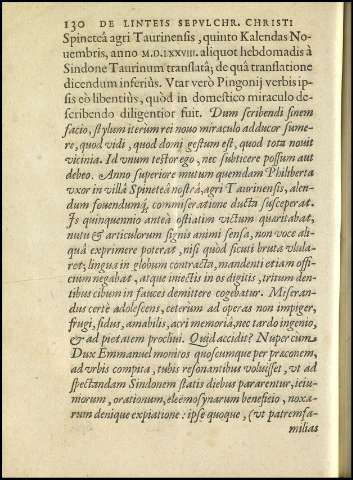 130 DE LINTEIS SEPVLCHR. CHRISTI
Spineteâ agri Taurinensis, quinto Kalendas No-
uembris, anno M.D.LXXVIII. aliquot hebdomadis à
Sindone Taurinum translatâ; de quâ translatione
dicendum inferiùs. Vtar verò Pingonij verbis ip-
sis eò libentiùs, quòd in domestico miraculo de-
scribendo diligentior fuit. Dum scribendi finem
facio, stylum iterum rei nouo miraculo adducor sume-
re, quod vidi, quod domi gestum est, quod tota nouit
vicinia. Id vnum testor ego, nec subticere possum aut
debeo. Anno superiore mutum quemdam Philiberta
vxor in villâ Spineteâ nostrâ, agri Taurinensis, alen-
dum fouendumq́, commiseratione ducta susceperat.
Is quinquennio anteà ostiatim victum quæritabat,
nutu & articulorum signis animi sensa, non voce ali-
quâ exprimere poterat, nisi quod sicuti bruta vlula-
ret; lingua in globum contracta, mandenti etiam offi-
cium negabat, atque iniectis in os digitis, tritum den-
tibus cibum in fauces demittere cogebatur. Miseran-
dus certè adolescens, ceterùm ad operas non impiger,
frugi, fidus, amabilis, acri memoria, nec tardo ingenio,
& ad pietatem procliui. Quid accidit? Nuper cum
Dux Emmanuel monitos quoscumque per præconem,
ad vrbis compita, tubis resonantibus voluisset, vt ad
spectandam Sindonem statis diebus pararentur, ieiu-
niorum, orationum, eleemosynarum beneficio, noxa-
rum denique expiatione: ipse quoque, (vt patremfa-
milias